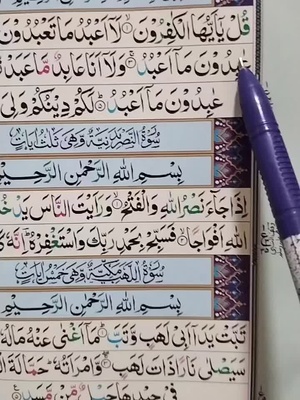 قُلْ يٰۤاَيُّهَا الْكٰفِرُوْنَ ۙ۝۱ لَاۤ اَعْبُدُ مَا تَعْبُدُوْنَ
عٰبِدُوْنَ مَاۤ اَعْبُدُ ۚ۝۳ وَلَاۤ اَنَا عَابِدٌ مَّا عَبَدْ
عٰبِدُوْنَ مَاۤ اَعْبُدُ ؕ۝۵ لَكُمْ دِيْنُكُمْ وَلِيَ
سُوْرَةُ النَّصْرِ مَدَنِيَّةٌ وَّهِيَ ثَلٰثُ اٰيَاتٍ
بِسْمِ اللّٰهِ الرَّحْمٰنِ الرَّحِيْمِ
اِذَا جَآءَ نَصْرُ اللّٰهِ وَالْفَتْحُ ۙ۝۱ وَرَاَيْتَ النَّاسَ يَدْخُ
اللّٰهِ اَفْوَاجًا ۙ۝۲ فَسَبِّحْ بِحَمْدِ رَبِّكَ وَاسْتَغْفِرْهُ ؕ اِنَّهٗ كَ
سُوْرَةُ اللَّهَبِ مَكِّيَّةٌ وَّهِيَ خَمْسُ اٰيَاتٍ
بِسْمِ اللّٰهِ الرَّحْمٰنِ الرَّحِيْمِ
تَبَّتْ يَدَاۤ اَبِيْ لَهَبٍ وَّتَبَّ ؕ۝۱ مَاۤ اَغْنٰى عَنْهُ مَالُهٗ
سَيَصْلٰى نَارًا ذَاتَ لَهَبٍ ۚۖ۝۳ وَّامْرَاَتُهٗ ؕ حَمَّالَةَ الْ
فِيْ جِيْدِهَا حَبْلٌ مِّنْ مَّسَدٍ